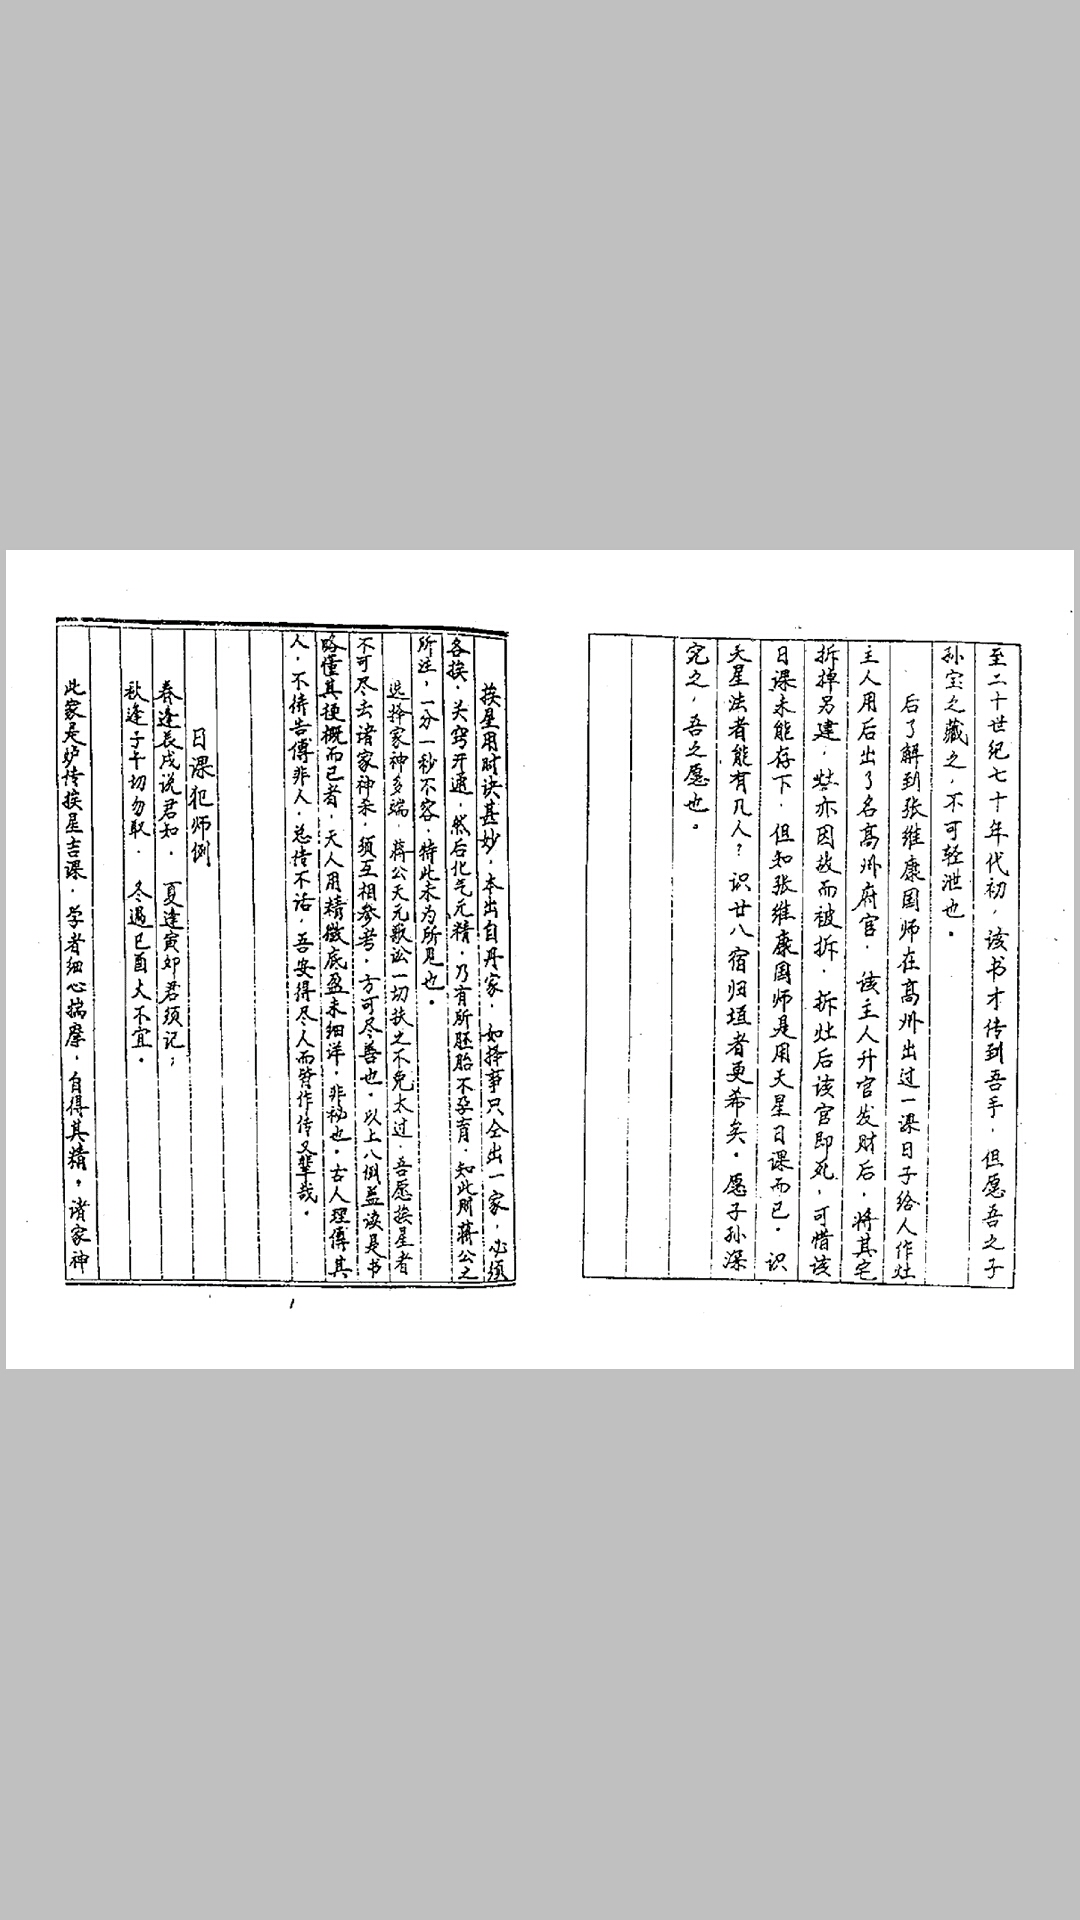 至二十世纪七十年代初，该书才传到吾手，但愿吾之子
孙宝之藏之，不可轻泄也。
后了解到张维康国师在高州出过一课日子给人作灶
主人用后出了名高州府官，该主人升官发财后，将其宅
拆掉另建，灶亦因故而被拆，拆灶后该官即死，可惜该
日课未能存下，但知张维康国师是用天星日课而已。识
天星法者能有几人？识廿八宿归垣者更希矣。愿子孙深
究之，吾之愿也。
挨星用时诀甚妙，本出自丹家，如择事只全出一家，必须
各挨，关窍开通，然后化气元精，乃有所胚胎不孕育，知此则蒋公之
所注，一分一秒不容，特此未为所见也。
选择家神多端，蒋公天元歌讼一切扶之不免太过，吾愿挨星者
不可尽去诸家神杀，须互相参考，方可尽善也。以上八例益读是书
略懂其梗概而已者，天人用精微底盈未细详，非秘也。古人理傅其
人，不待告傅非人，总传不话，吾安得尽人而皆作传又辈哉。
日课犯师例
春逢辰戌说君知，夏逢寅卯君须记；
秋逢子午切勿取，冬遇巳酉大不宜。
此家是妒传挨星吉课，学者细心揣摩，自得其精，诸家神
1